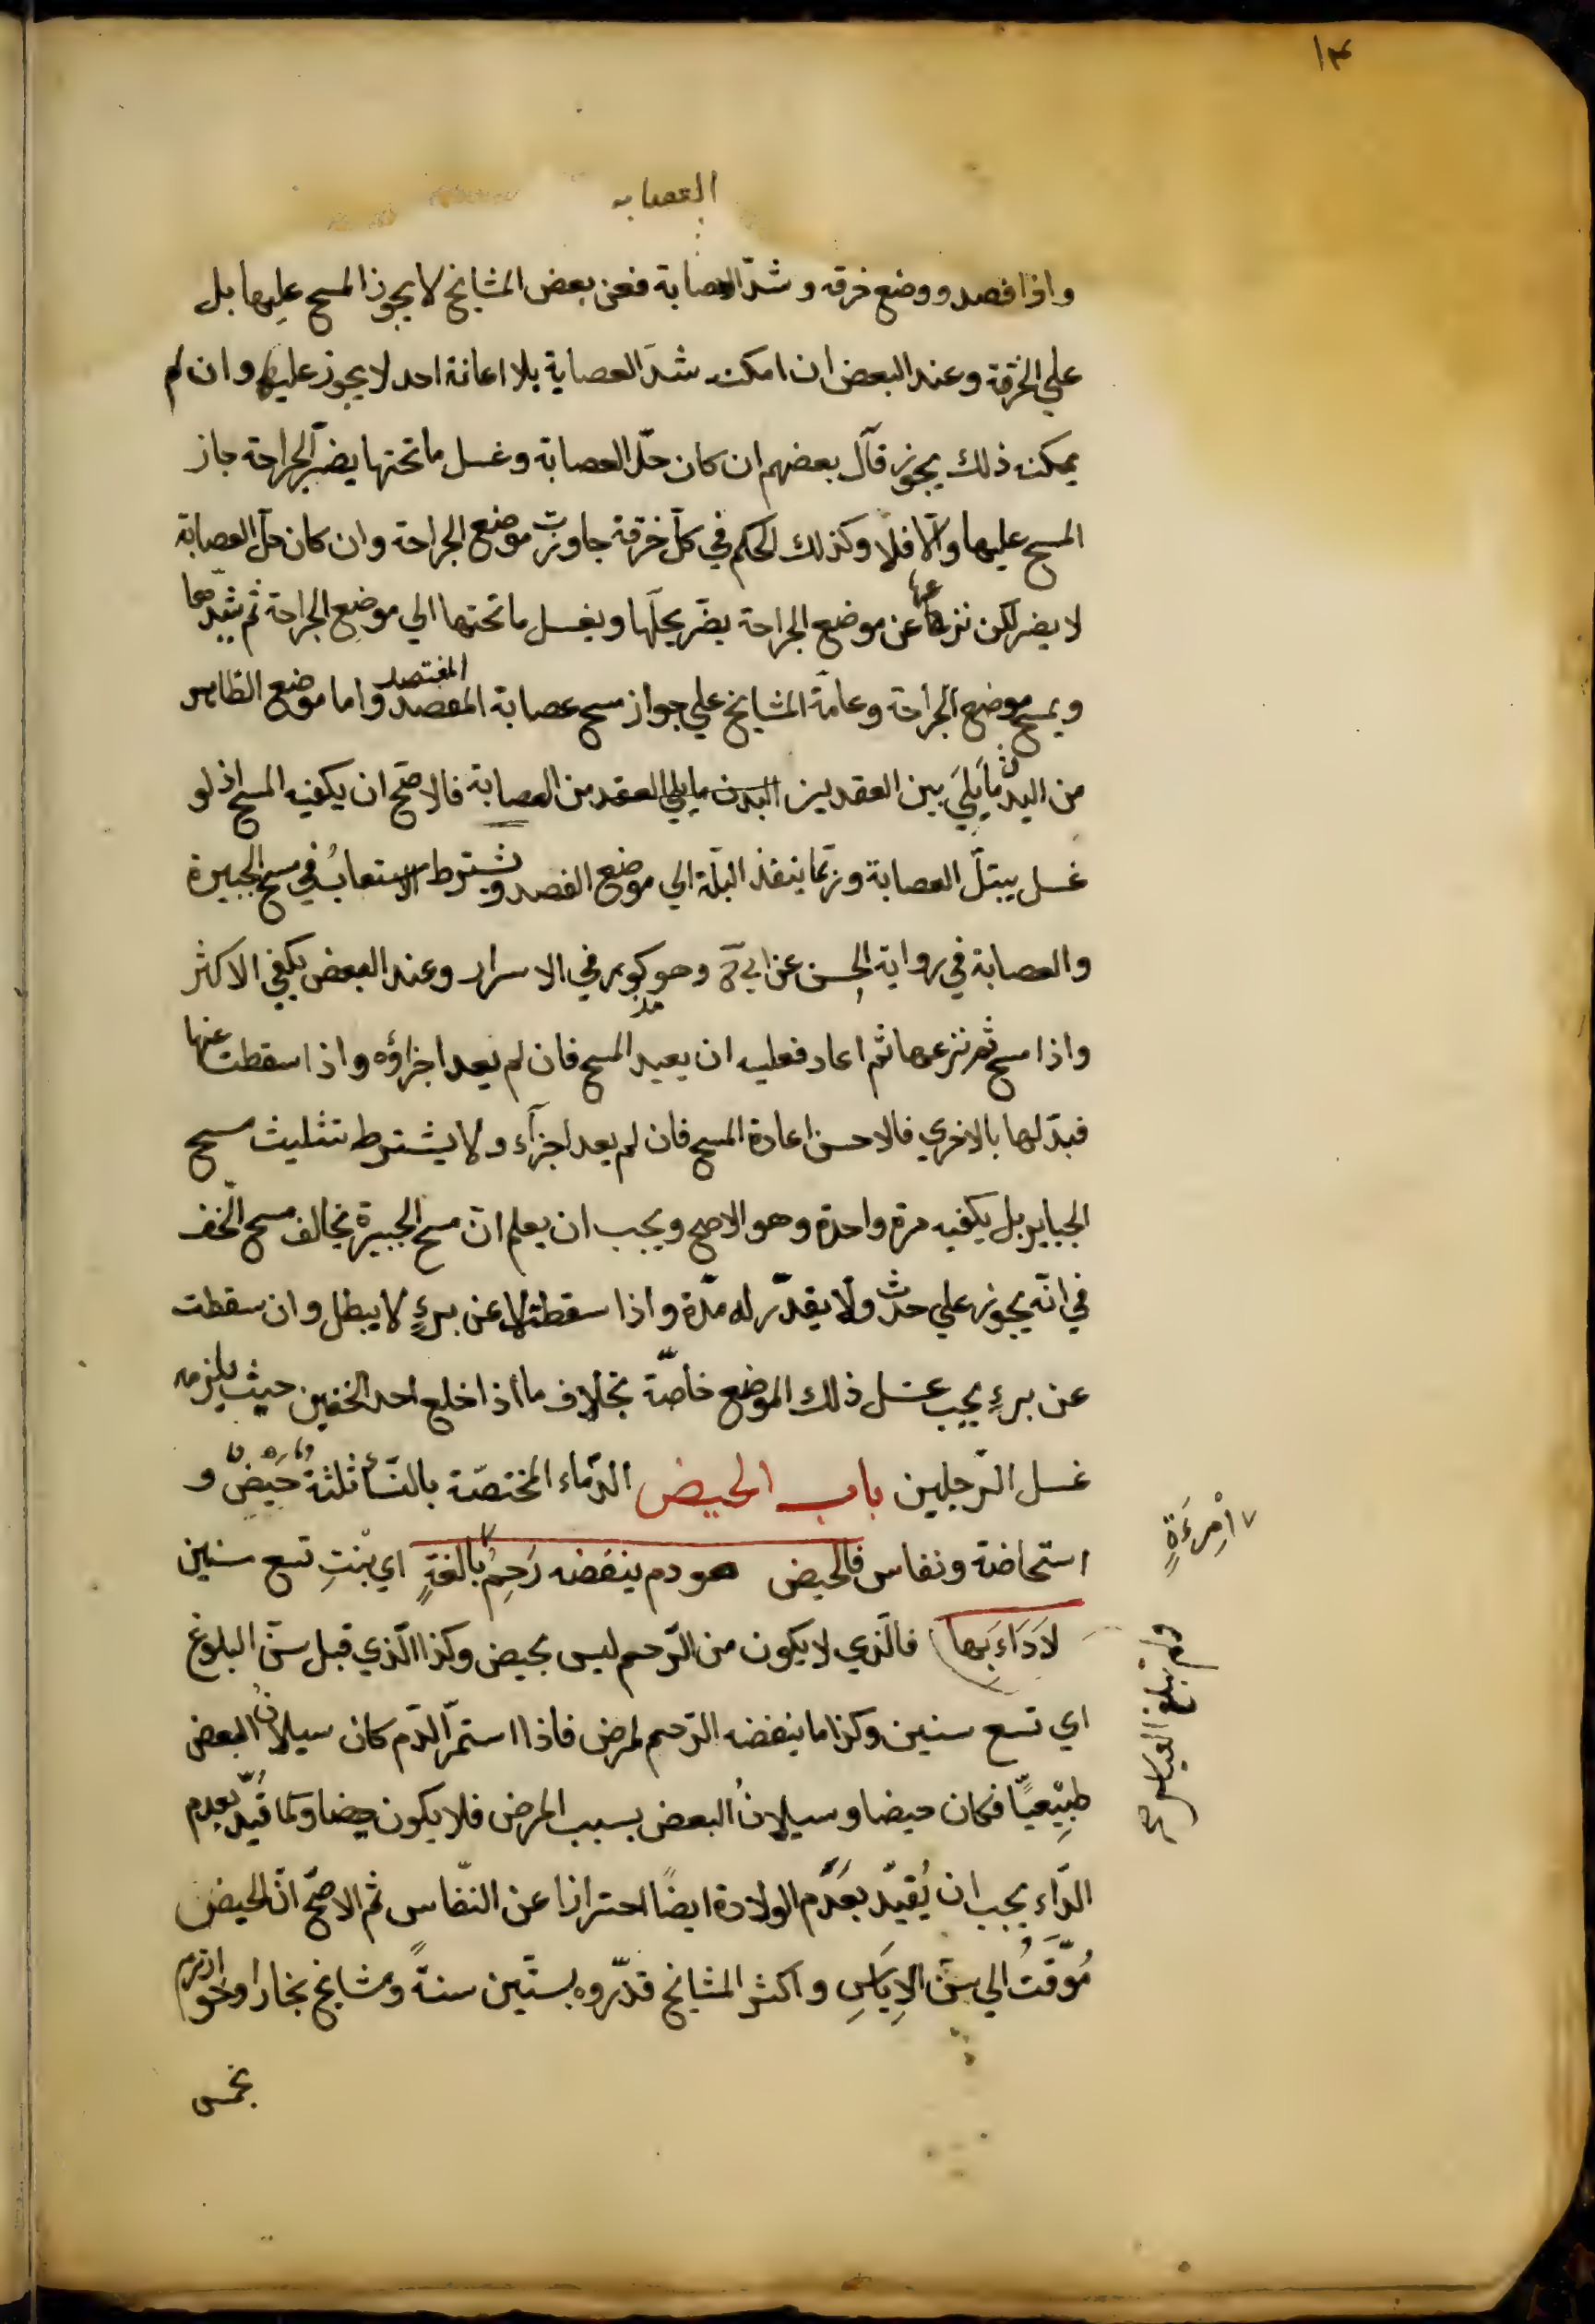 ١٣
العصابه
واذا فصد ووضع خرقه وشدّ العصابة فعن بعض المشايخ لا يجوز المسح عليها بل
علي الخرقة وعند البعض ان امكنه شدّ العصابة بلا اعانة احد لا يجوز عليها وان لم
يمكنه ذلك يجوز قال بعضهم ان كان حلّ العصابة وغسل ما تحتها يضرّ الجراحة جاز
المسح عليها والّا فلا وكذلك الحكم في كلّ خرقة جاوزت موضع الجراحة وان كان حلّ العصابة
لا يضر لكن نزعها عن موضع الجراحة يضرّ يحلّها ويغسل ما تحتها الي موضع الجراحة ثم يشدّها
ويمسح موضع الجراحة وعامّة المشايخ علي جواز مسح عصابة المفتصد واما موضع الظاهر
من اليد ما يلي بين العقدين البدن ما يلي العقد من العصابة فالاصحّ ان يكفيه المسح اذ لو
غسل يبتلّ العصابة وربّما ينفذ البلّة الي موضع الفصد ويشترط الاستيعابُ في مسح الجبيرة
والعصابة في رواية الحسن عن ابي ح وهو مذكور في الاسرار وعند البعض يكفي الاكثر
واذا مسح ثم نزعها ثم اعاد فعليه ان يعيد المسح فان لم يعد اجزاؤه واذا سقطت عنها
فبدّلها بالاخري فالاحسن اعادة المسح فان لم يعد اجزآء ولا يشترط تثليث مسح
الجباير بل يكفيه مرة واحدة وهو الاصح ويجب ان يعلم انّ مسح الجبيرة يخالف مسح الخف
في انّه يجوز علي حدث ولا يقدّر له مدّة واذا سقطت لا عن برءٍ لا يبطل وان سقطت
عن برءٍ يجب غسل ذلك الموضع خاصّة بخلاف ما اذا خلع احد الخفين حيث يلزمه
غسل الرّجلين باب الحيض الدّماء المختصّة بالنّسأ ثلثةٌ حيضٌ و
استحاضة ونفاس فالحيض هو دم ينفضه رَحِمُ بالغةٍ اي بنتِ تسع سنين
لا دَاءَ بها فالّذي لا يكون من الرّحم ليس بحيض وكذا الّذي قبل سنّ البلوغ
اي تسع سنين وكذا ما ينفضه الرّحم لمرض فاذا استمرّ الدّم كان سيلانُ البعض
طبِيْعيًّا فكان حيضا وسيلانُ البعض بسبب المرض فلا يكون حيضا وكما قُيّد بعدم
الدّاء يجب ان يُقيّد بعَدَم الولادة ايضًا احترازا عن النّفاس ثم الاصحّ انّ الحيض
مُوَقّتٌ الي سنّ الاِيَاسِ واكثر المشايخ قدّروه بستّين سنةً ومشايخ بخارا وخوارزم
بخمس
امرءَةٍ
ولم تبلغ